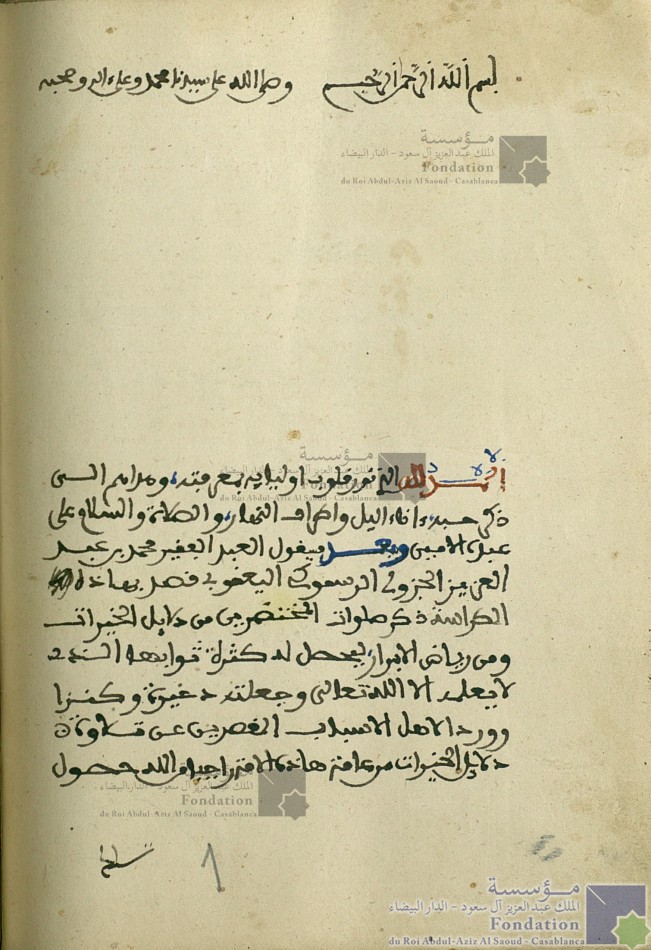 بسم الله الرحمن الرحيم وصلى الله على سيدنا محمد وعلى ءاله وصحبه
مؤسسة
الملك عبد العزيز آل سعود - الدار البيضاء
Fondation
du Roi Abdul-Aziz Al Saoud - Casablanca
الحمد لله الذي نور قلوب أوليايه بمعرفته، وهداهم إلى
ذكر حبيبه ءاناء اليل واطراف النهار، والصلاة والسلام على
عبده الامين وبعد فيقول العبد الفقير محمد بن عبد
العزيز الجزولي الرسموكي اليعقوبي قصد بهاذه
الكراسة ذكر صلوات المختصرين من دلايل الخيرات
ومن رياض الابرار ليحصل له كثرة ثوابها الذي
لا يعلمه الا الله تعالى وجعلته ذخيرة وكنزا
ووردا لاهل الاسباب القاصرين عن تلاوة
دلايل الخيرات من عامة هاذه الامة راجيا من الله حصول
مؤسسة
الملك عبد العزيز آل سعود - الدار البيضاء
Fondation
du Roi Abdul-Aziz Al Saoud - Casablanca
الملك عبد العزيز آل سعود - الدار البيضاء
Fondation
du Roi Abdul-Aziz Al Saoud - Casablanca
1
مؤسسة
الملك عبد العزيز آل سعود - الدار البيضاء
Fondation
du Roi Abdul-Aziz Al Saoud - Casablanca